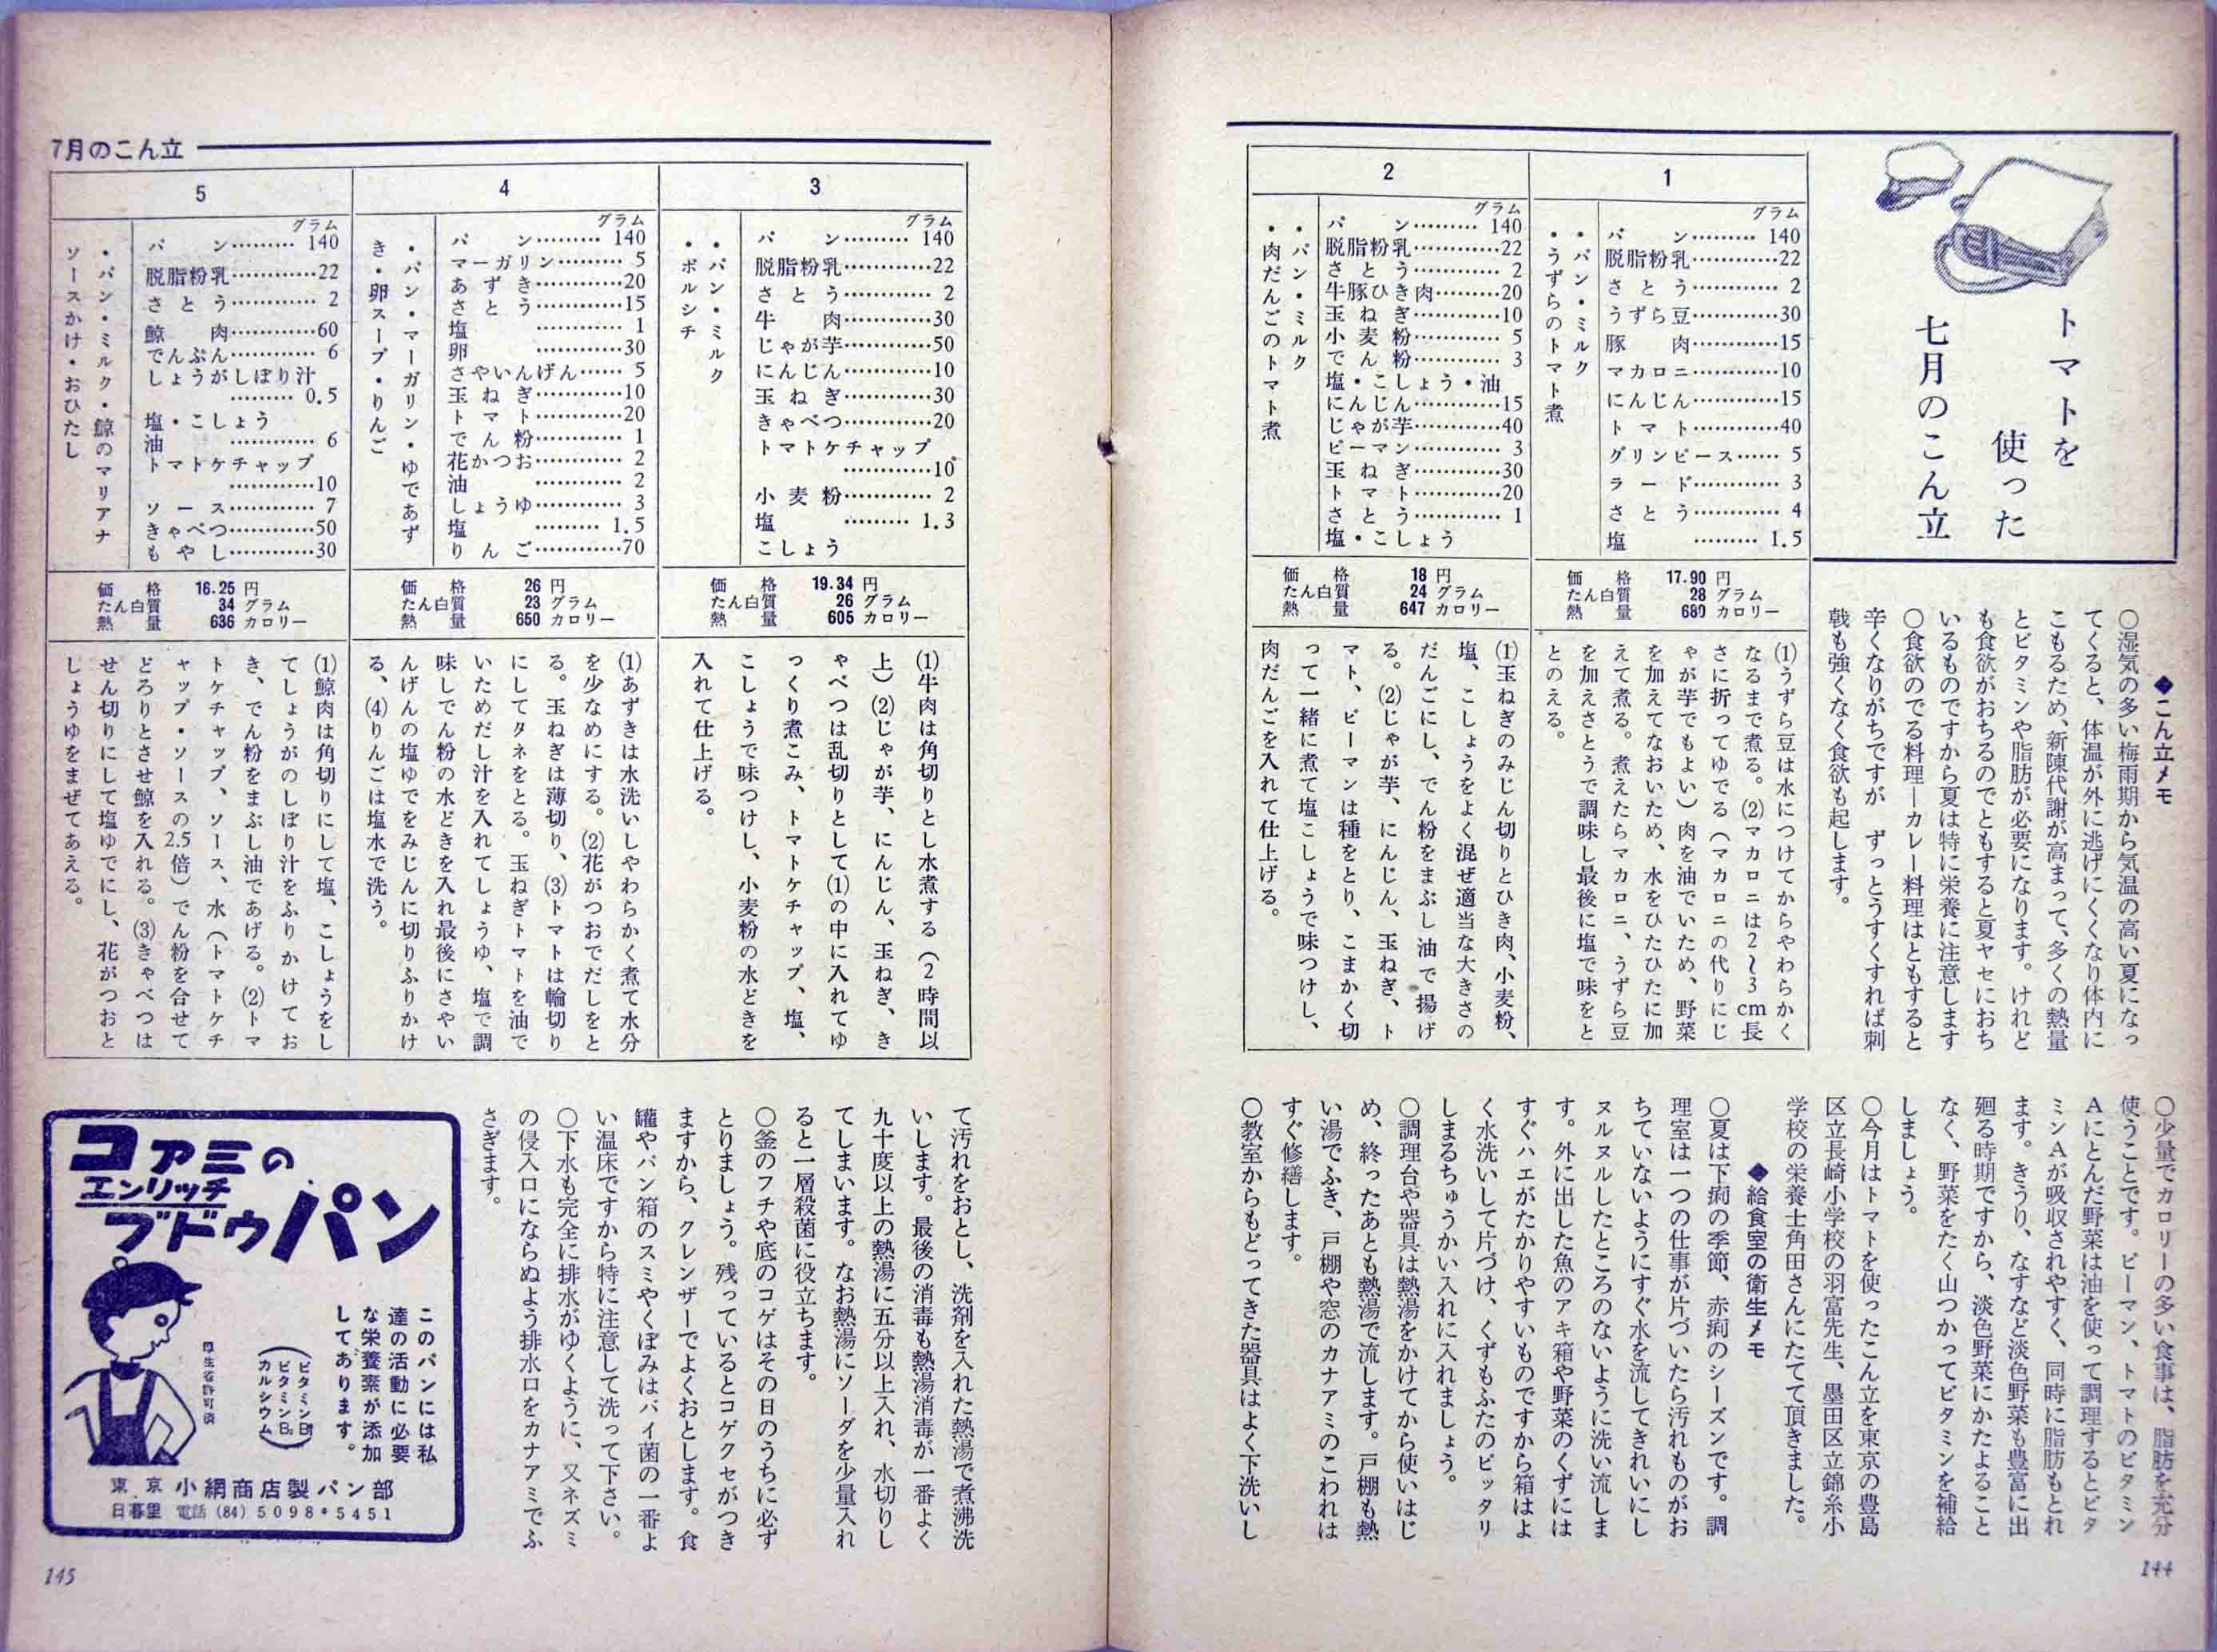 トマトを
使った
七月のこん立
◆こん立メモ
○湿気の多い梅雨期から気温の高い夏になっ
てくると、体温が外に逃げにくくなり体内に
こもるため、新陳代謝が高まって、多くの熱量
とビタミンや脂肪が必要になります。けれど
も食欲がおちるのでともすると夏ヤセにおち
いるものですから夏は特に栄養に注意します
○食欲のでる料理―カレー料理はともすると
辛くなりがちですが ずっとうすくすれば刺
戟も強くなく食欲も起します。
1
・パン・ミルク
・うずらのトマト煮
グラム
パン………140
脱脂粉乳…………22
さとう…………2
うずら豆…………30
豚肉…………15
マカロニ…………10
にんじん…………15
トマト…………40
グリンピース……5
ラード…………3
さとう…………4
塩………1.5
価格 17.90 円
たん白質 28 グラム
熱量 689 カロリー
(1)うずら豆は水につけてからやわらかく
なるまで煮る。(2)マカロニは2〜3cm長
さに折ってゆでる（マカロニの代りにじ
ゃが芋でもよい）肉を油でいため、野菜
を加えてなおいため、水をひたひたに加
えて煮る。煮えたらマカロニ、うずら豆
を加えさとうで調味し最後に塩で味をと
とのえる。
2
・パン・ミルク
・肉だんごのトマト煮
グラム
パン………140
脱脂粉乳…………22
さとう…………2
牛豚ひき肉………20
玉ねぎ…………10
小麦粉…………5
でん粉…………3
塩・こしょう・油
にんじん…………15
じゃが芋…………40
ピーマン…………3
玉ねぎ…………30
トマト…………20
さとう…………1
塩・こしょう
価格 18 円
たん白質 24 グラム
熱量 647 カロリー
(1)玉ねぎのみじん切りとひき肉、小麦粉、
塩、こしょうをよく混ぜ適当な大きさの
だんごにし、でん粉をまぶし油で揚げ
る。(2)じゃが芋、にんじん、玉ねぎ、ト
マト、ピーマンは種をとり、こまかく切
って一緒に煮て塩こしょうで味つけし、
肉だんごを入れて仕上げる。
○少量でカロリーの多い食事は、脂肪を充分
使うことです。ピーマン、トマトのビタミン
Aにとんだ野菜は油を使って調理するとビタ
ミンAが吸収されやすく、同時に脂肪もとれ
ます。きうり、なすなど淡色野菜も豊富に出
廻る時期ですから、淡色野菜にかたよること
なく、野菜をたく山つかってビタミンを補給
しましょう。
○今月はトマトを使ったこん立を東京の豊島
区立長崎小学校の羽富先生、墨田区立錦糸小
学校の栄養士角田さんにたてて頂きました。
◆給食室の衛生メモ
○夏は下痢の季節、赤痢のシーズンです。調
理室は一つの仕事が片づいたら汚れものがお
ちていないようにすぐ水を流してきれいにし
ヌルヌルしたところのないように洗い流しま
す。外に出した魚のアキ箱や野菜のくずには
すぐハエがたかりやすいものですから箱はよ
く水洗いして片づけ、くずもふたのピッタリ
しまるちゅうかい入れに入れましょう。
○調理台や器具は熱湯をかけてから使いはじ
め、終ったあとも熱湯で流します。戸棚も熱
い湯でふき、戸棚や窓のカナアミのこわれは
すぐ修繕します。
○教室からもどってきた器具はよく下洗いし
144
7月のこん立
3
・パン・ミルク
・ボルシチ
グラム
パン………140
脱脂粉乳…………22
さとう…………2
牛肉…………30
じゃが芋…………50
にんじん…………10
玉ねぎ…………30
きゃべつ…………20
トマトケチャップ
…………10
小麦粉…………2
塩………1.3
こしょう
価格 19.34 円
たん白質 26 グラム
熱量 605 カロリー
(1)牛肉は角切りとし水煮する（2時間以
上）(2)じゃが芋、にんじん、玉ねぎ、き
ゃべつは乱切りとして(1)の中に入れてゆ
っくり煮こみ、トマトケチャップ、塩、
こしょうで味つけし、小麦粉の水どきを
入れて仕上げる。
4
・パン・マーガリン・ゆであず
き・卵スープ・りんご
グラム
パン………140
マーガリン………5
あずき…………20
さとう…………15
塩…………1
卵…………30
さやいんげん……5
玉ねぎ…………10
トマト…………20
でん粉…………1
花かつお…………2
油…………2
しょうゆ…………3
塩………1.5
りんご…………70
価格 26 円
たん白質 23 グラム
熱量 650 カロリー
(1)あずきは水洗いしやわらかく煮て水分
を少なめにする。(2)花がつおでだしをと
る。玉ねぎは薄切り、(3)トマトは輪切り
にしてタネをとる。玉ねぎトマトを油で
いためだし汁を入れてしょうゆ、塩で調
味しでん粉の水どきを入れ最後にさやい
んげんの塩ゆでをみじんに切りふりかけ
る、(4)りんごは塩水で洗う。
5
・パン・ミルク・鯨のマリアナ
ソースかけ・おひたし
グラム
パン………140
脱脂粉乳…………22
さとう…………2
鯨肉…………60
でんぷん…………6
しょうがしぼり汁
………0.5
塩・こしょう
油…………6
トマトケチャップ
…………10
ソース…………7
きゃべつ…………50
もやし…………30
価格 16.25 円
たん白質 34 グラム
熱量 636 カロリー
(1)鯨肉は角切りにして塩、こしょうをし
てしょうがのしぼり汁をふりかけてお
き、でん粉をまぶし油であげる。(2)トマ
トケチャップ、ソース、水（トマトケチ
ャップ・ソースの2.5倍）でん粉を合せて
どろりとさせ鯨を入れる。(3)きゃべつは
せん切りにして塩ゆでにし、花がつおと
しょうゆをまぜてあえる。
て汚れをおとし、洗剤を入れた熱湯で煮沸洗
いします。最後の消毒も熱湯消毒が一番よく
九十度以上の熱湯に五分以上入れ、水切りし
てしまいます。なお熱湯にソーダを少量入れ
ると一層殺菌に役立ちます。
○釜のフチや底のコゲはその日のうちに必ず
とりましょう。残っているとコゲクセがつき
ますから、クレンザーでよくおとします。食
罐やパン箱のスミやくぼみはバイ菌の一番よ
い温床ですから特に注意して洗って下さい。
○下水も完全に排水がゆくように、又ネズミ
の侵入口にならぬよう排水口をカナアミでふ
さぎます。
コアミの
エンリッチ
ブドウパン
このパンには私
達の活動に必要
な栄養素が添加
してあります。
（ビタミンB₁
ビタミンB₂
カルシウム）
厚生省許可済
東京 小網商店製パン部
日暮里 電話(84)5098・5451
145